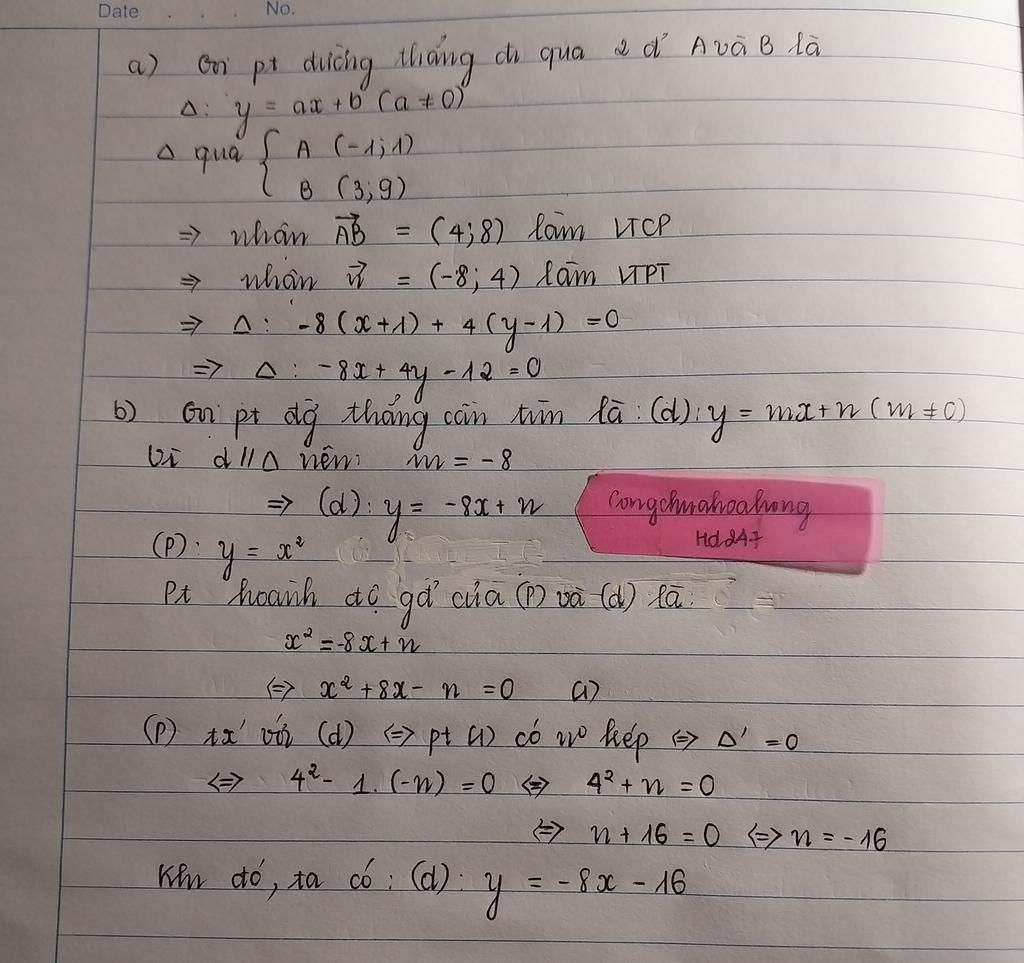 Date . . . No.
a) Gọi pt đường thẳng đi qua 2 đ' A và B là
Δ: y = ax + b (a ≠ 0)
Δ qua { A (-1; 1)
B (3; 9)
=> nhận AB→ = (4; 8) làm VTCP
=> nhận n→ = (-8; 4) làm VTPT
=> Δ: -8(x+1) + 4(y-1) = 0
=> Δ: -8x + 4y - 12 = 0
b) Gọi pt đg thẳng cần tìm là: (d): y = mx + n (m ≠ 0)
Vì d // Δ nên: m = -8
=> (d): y = -8x + n
Congchuahoahong
Hd247
(P): y = x²
Pt hoành độ gđ' của (P) và (d) là:
x² = -8x + n
<=> x² + 8x - n = 0 (1)
(P) tx' với (d) <=> pt (1) có n⁰ kép <=> Δ' = 0
<=> 4² - 1.(-n) = 0 <=> 4² + n = 0
<=> n + 16 = 0 <=> n = -16
Khi đó, ta có: (d): y = -8x - 16